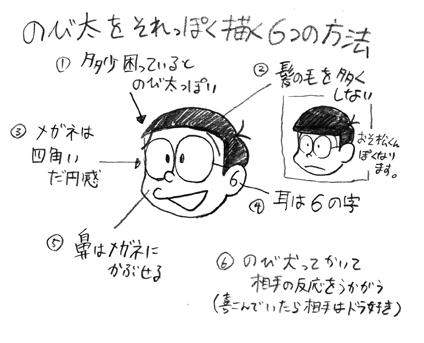 のび太をそれっぽく描く6つの方法
① 多少困っていると
のび太っぽい
② 髪の毛を多く
しない
おそ松くん
ぽくなり
ます。
③ メガネは
四角い
だ円感
④ 耳は6の字
⑤ 鼻はメガネに
かぶせる
⑥ のび犬ってかいて
相手の反応をうかがう
(喜こんでいたら相手はドラ好き)